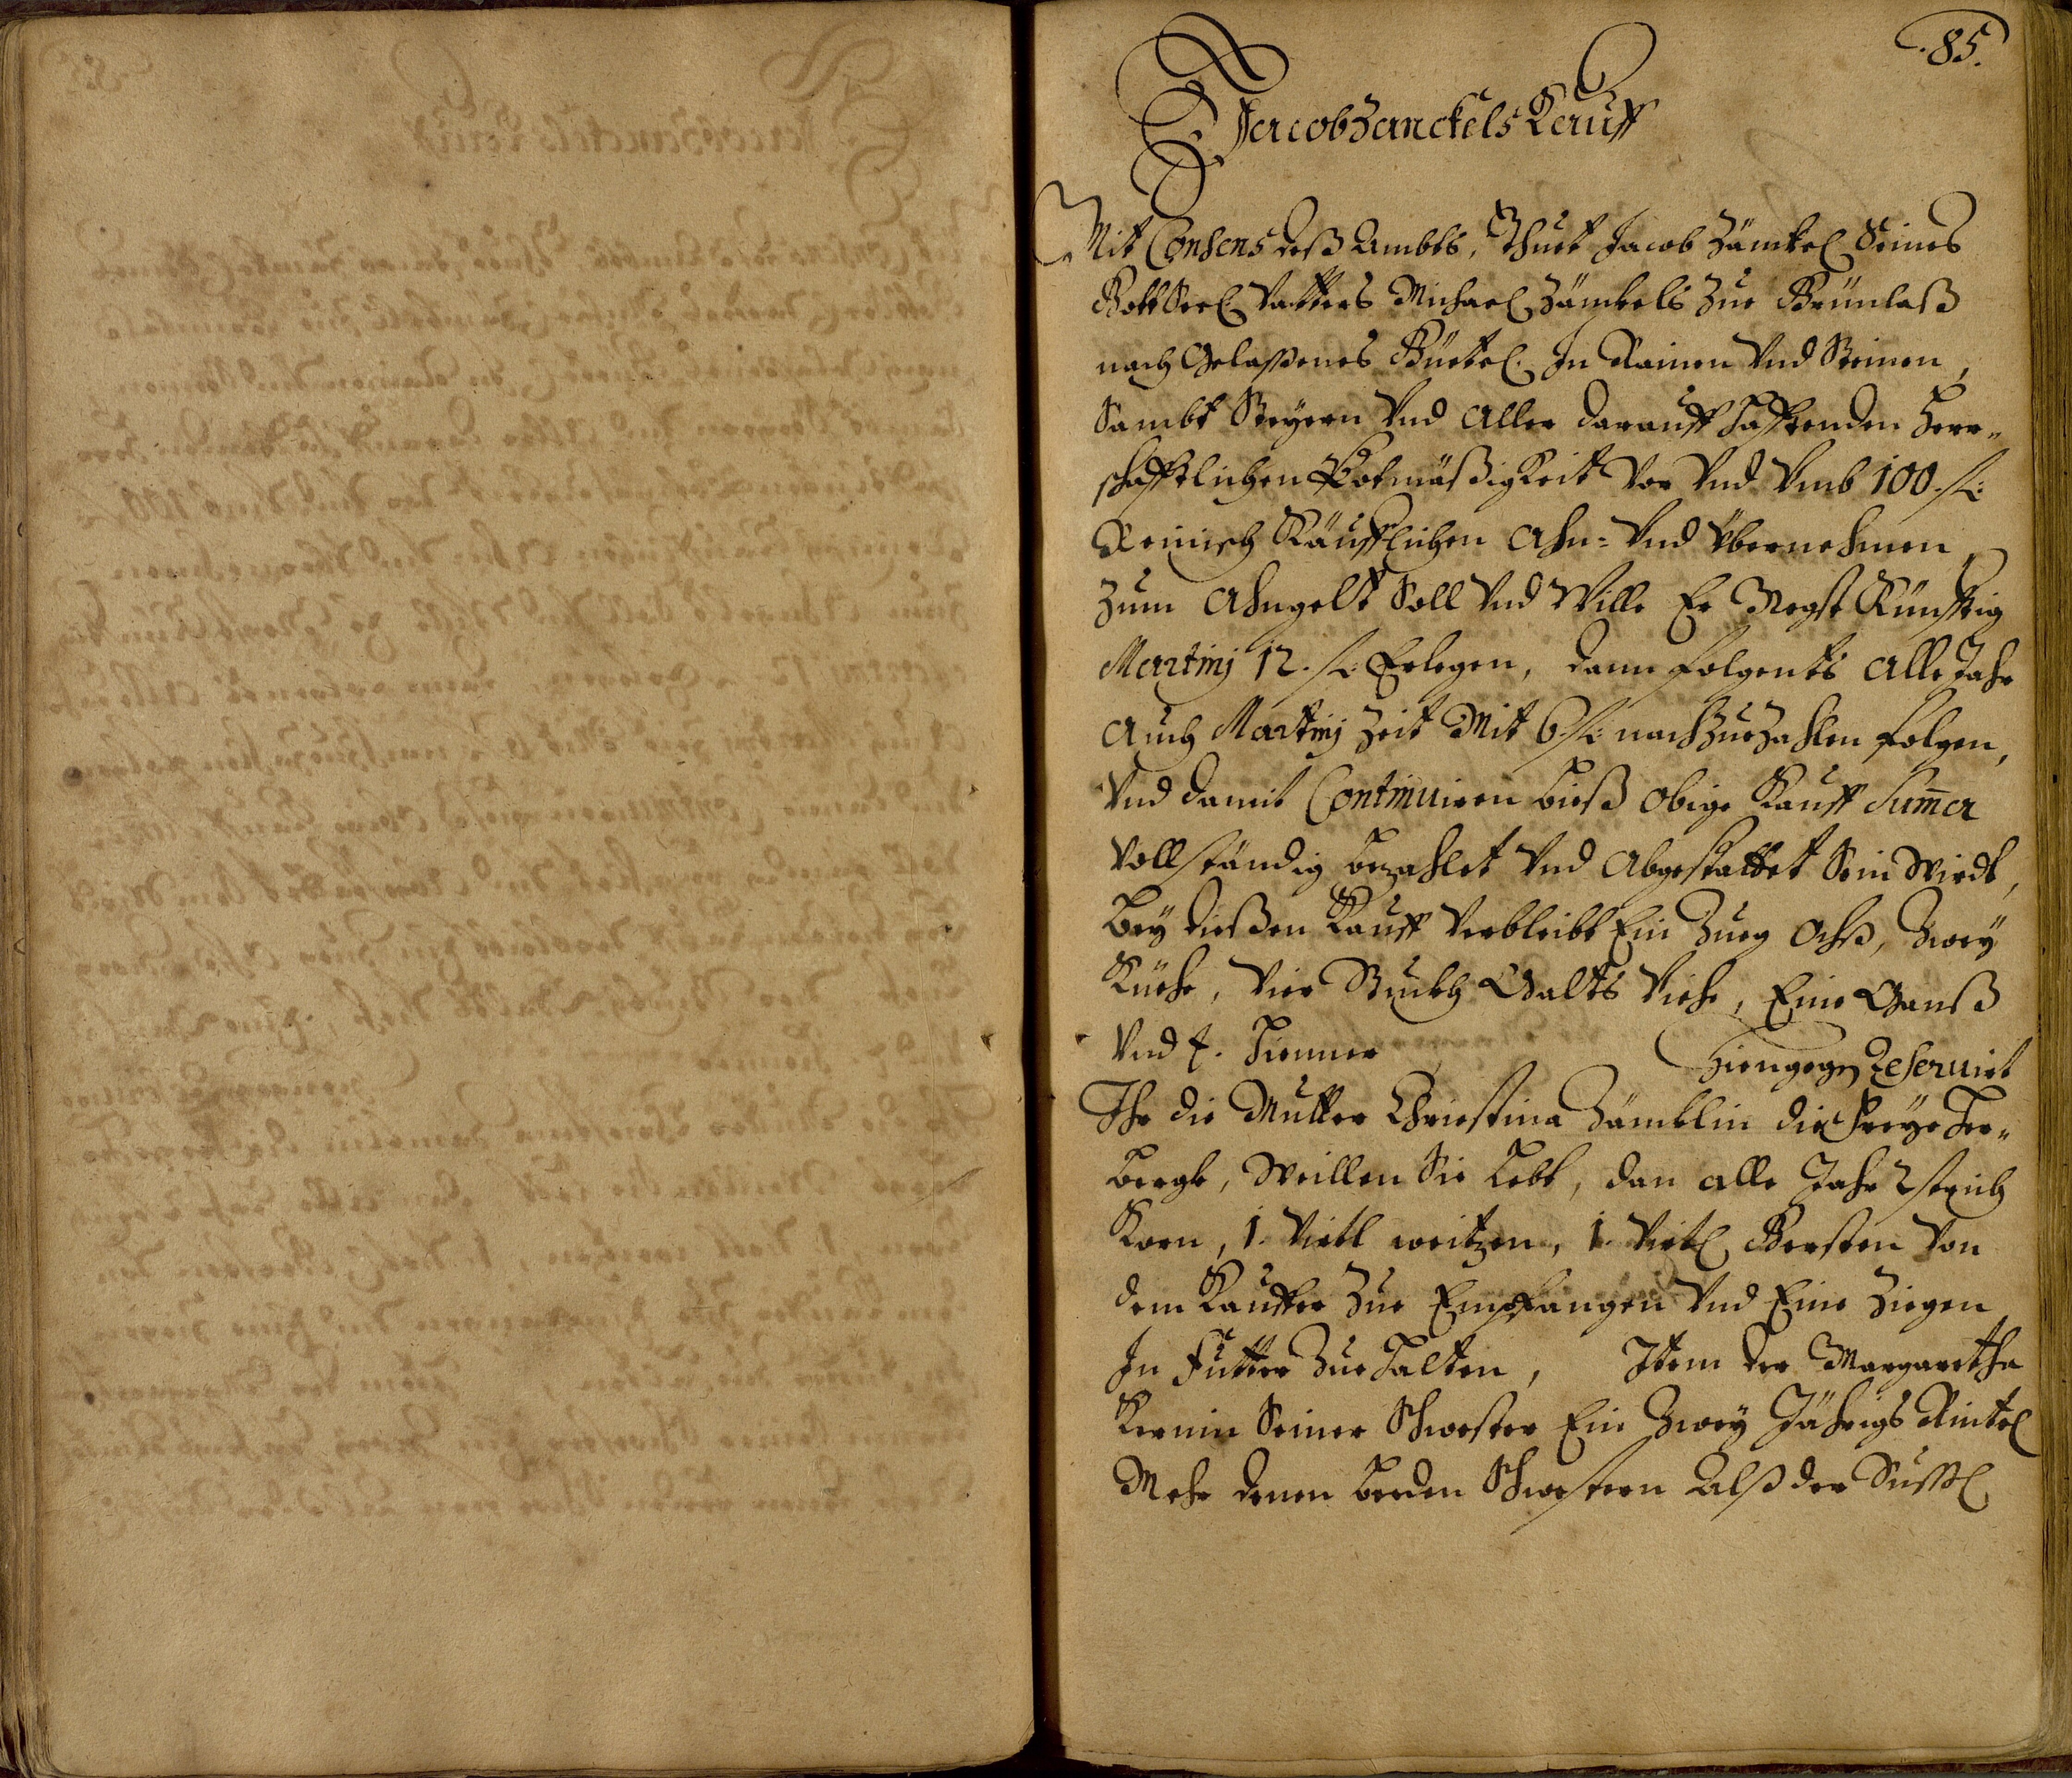 85.
Jacob Zanckels Kauff
Mit Consens deß Ambts, Thuet Jacob Zämkel Seines
Gott Seel Vatters Michael Zämkels Zue Grünlaß
nach Gelaßenes Güetel In Rainen Vnd Steinen,
Sambt Steyern Vnd Aller darauff Hafftenden Herr„
schafftlichen Pottmäßigkeit Vor Vnd Vmb 100 fl:
Reinisch Käufflichen Ahn- Vnd Übernehmen,
Zum Ahngelt Soll Vnd Wille Er Negst Künfftig
Martinj 12. fl: Erlegen, dann folgents Alle Jahr
Auch Martinj Zeit Mit 6 fl: nachZueZahlen folgen,
Vnd damit Continuiren bieß Obige Kauff Sum̄a
Vollständig bezahlet Vnd Abgestattet Sein Wirdt,
Bey dießen Kauff Verbleibt Ein Zueg Ochß, Zwey
Küehe, Vier Stuckh Galts Viehe, Eine Ganß
Vnd Hienner Hiengegen Reseruirt
Ihr die Mutter Christina Zämklin die Freye Her„
bergk, Weillen Sie Lebt, dan alle Jahr 2 strich
Korn, 1. Viertl weitzen, 1. Viertl Gersten Von
dem Kauffer Zue Empfangen Vnd Eine Ziegen
In Futter Zue Halten, Item der Margaretha
Seiner Schwester Ein Zwey Jährigs Rintel
Mehr denen beeden Schwestern Alß der